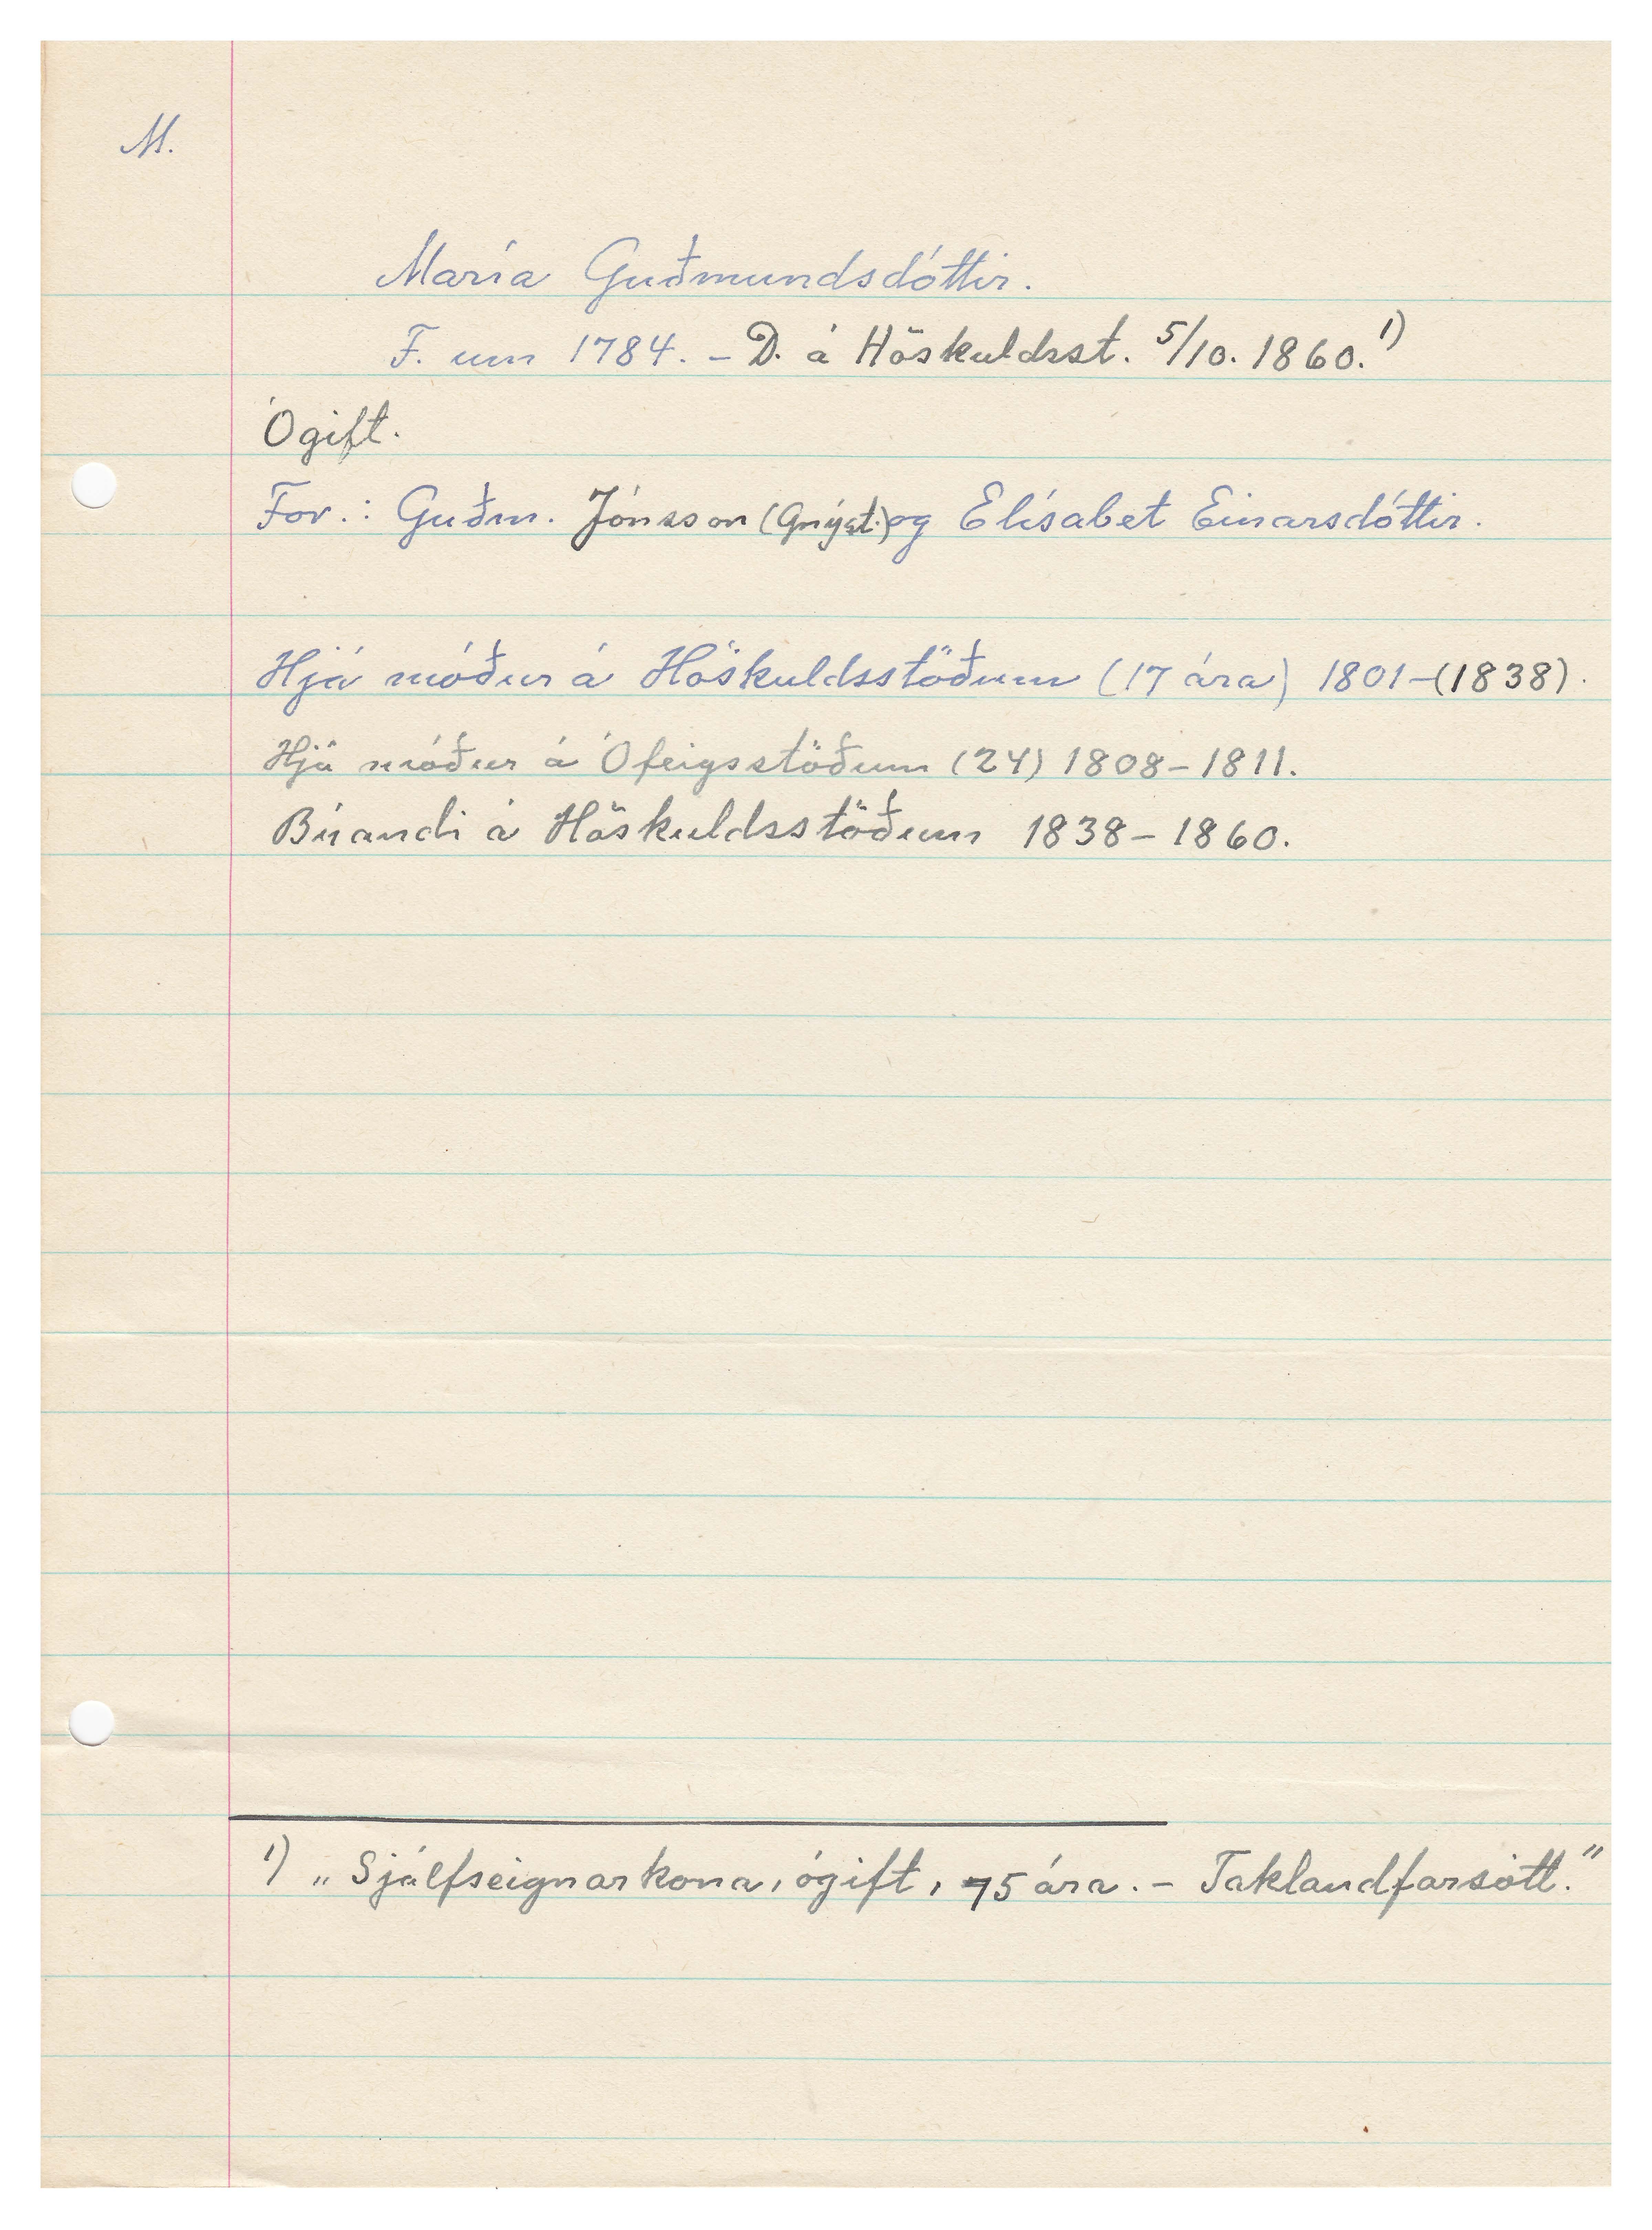 M.
María Guðmundsdóttir.
F. um 1784. – D. á Höskuldsst. 5/10. 1860. 1)
Ógift.
For.: Guðm. Jónsson (Gnýst.) og Elísabet Einarsdóttir.
Hjá móður á Höskuldsstöðum (17 ára) 1801–(1838).
Hjá móður á Ófeigsstöðum (24) 1808–1811.
Búandi á Höskuldsstöðum 1838–1860.
1) „Sjálfseignarkona, ógift, 75 ára. – Taklandfarsótt.“